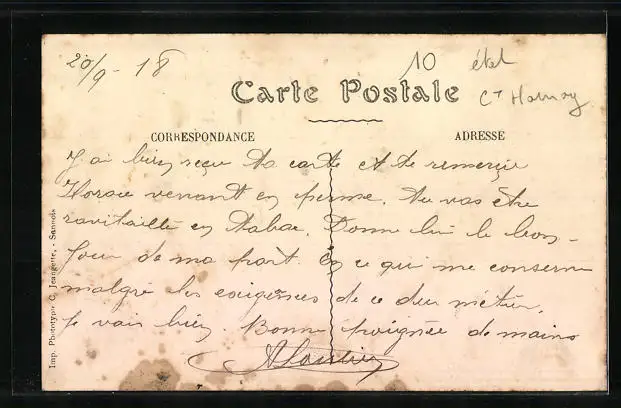 20/9 - 18
10 état
Ct Hornoy
Carte Postale
CORRESPONDANCE
ADRESSE
J'ai bien reçu ta carte et te remercie
Horace venant en perme, tu vas être
ravitaillé en tabac. Donne lui le bon-
jour de ma part. En ce qui me conserne
malgré les exigences de ce dur métier,
je vais bien. Bonne poignée de mains
Imp. Phototypie C. Jeangette, - Sannois